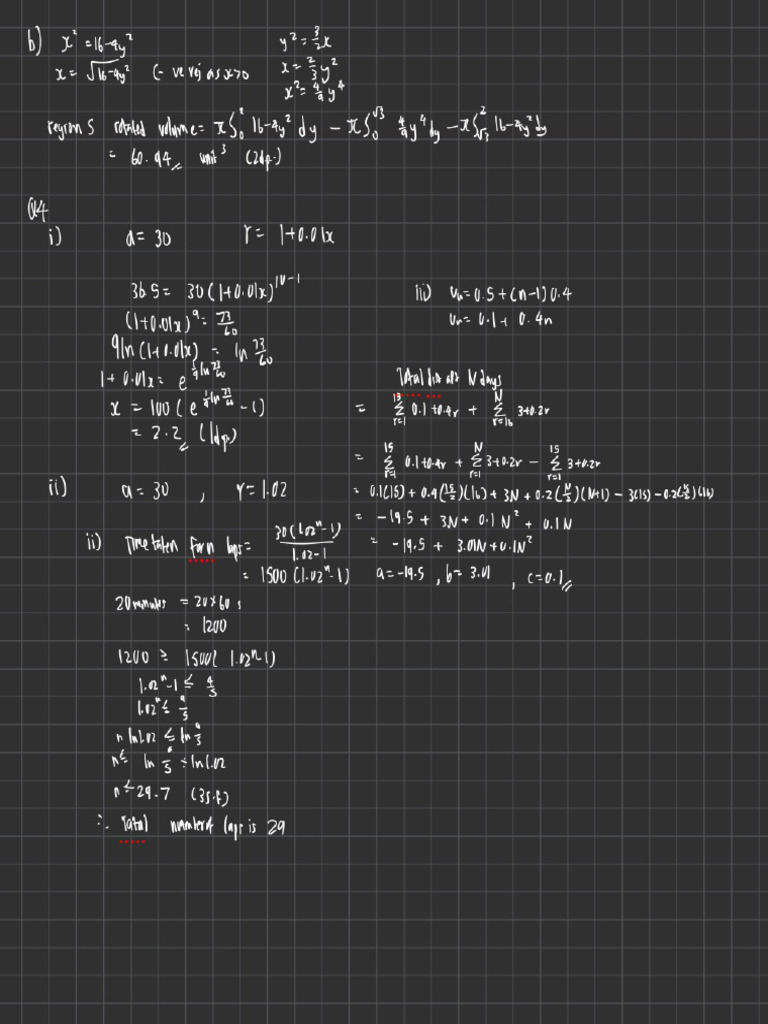 b) x² = 16-4y²
x = √16-4y² (- ve rej as x>0
y² = 3/2 x
x = 2/3 y²
x² = 4/9 y⁴
region S rotated volume = π∫₀² 16-4y² dy - π∫₀^√3 4/9 y⁴ dy - π∫_√3² 16-4y² dy
= 60.94 unit³ (2dp.)
Q4
i) a = 30 r = 1+0.01x
36.5 = 30(1+0.01x)^10-1
(1+0.01x)⁹ = 73/60
9ln(1+0.01x) = ln 73/60
1+0.01x = e^1/9 ln 73/60
x = 100(e^1/9 ln 73/60 -1)
= 2.2 (1dp)
ii) a = 30 , r = 1.02
ii) Time taken for n laps = 30(1.02ⁿ-1)/1.02-1
= 1500(1.02ⁿ-1)
20 minutes = 20×60 s
= 1200
1200 ≥ 1500(1.02ⁿ-1)
1.02ⁿ-1 ≤ 4/5
1.02ⁿ ≤ 9/5
n ln1.02 ≤ ln 9/5
n ≤ ln 9/5 ÷ ln1.02
n ≤ 29.7 (3s.f)
∴ Total number of laps is 29
iii) Uₙ = 0.5+(n-1)0.4
Uₙ = 0.1+ 0.4n
Total dist aft N days
= 15Σr=1 0.1+0.4r + NΣr=16 3+0.2r
= 15Σr=1 0.1+0.4r + NΣr=1 3+0.2r - 15Σr=1 3+0.2r
= 0.1(15)+0.4(15/2)(16)+3N+0.2(N/2)(N+1)-3(15)-0.2(15/2)(16)
= -19.5 + 3N+0.1N² + 0.1N
= -19.5 + 3.01N+0.1N²
a = -19.5 , b = 3.01 , c = 0.1